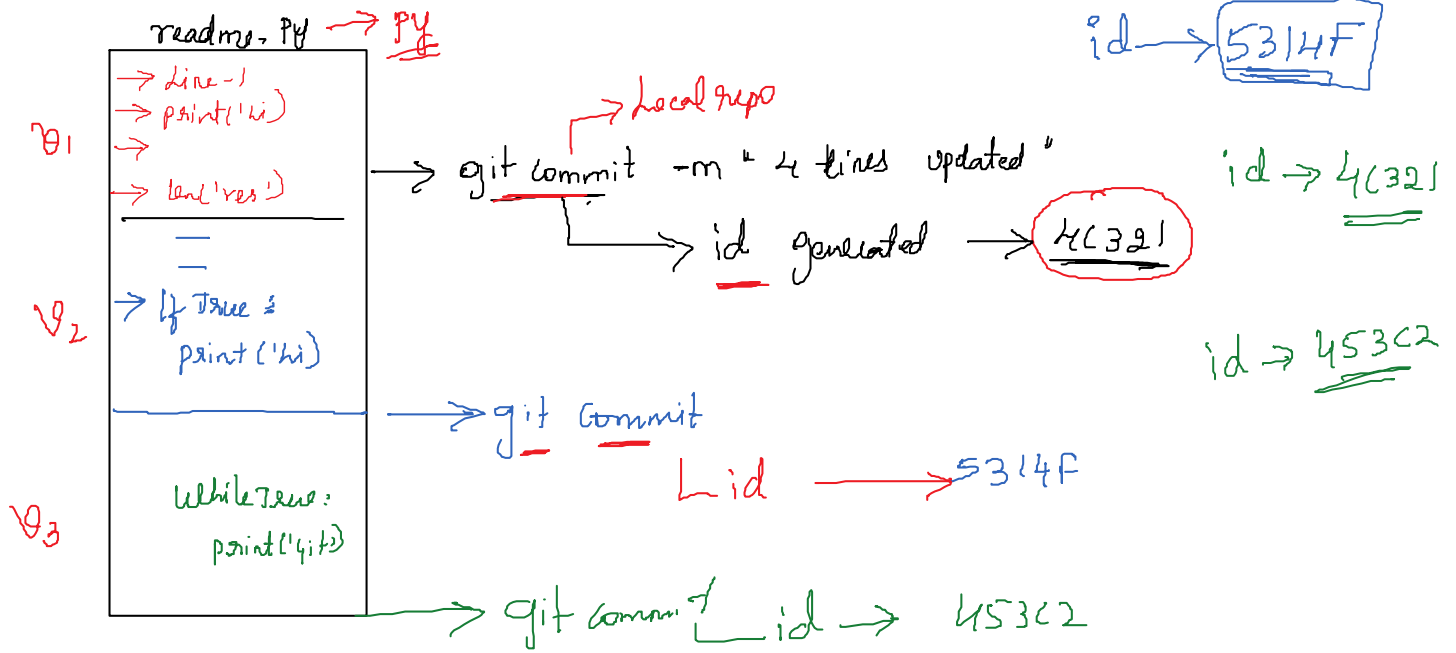 readme.py → py
id → 5314F
→ Line-1
→ print('hi)
→
→ len('res')
v1
Local repo
→ git commit -m " 4 lines updated "
id generated → 4C321
id → 4C321
v2
→ If True :
print('hi)
id → 453C2
→ git commit
id → 5314F
v3
While True:
print('git)
→ git commit
id → 453C2